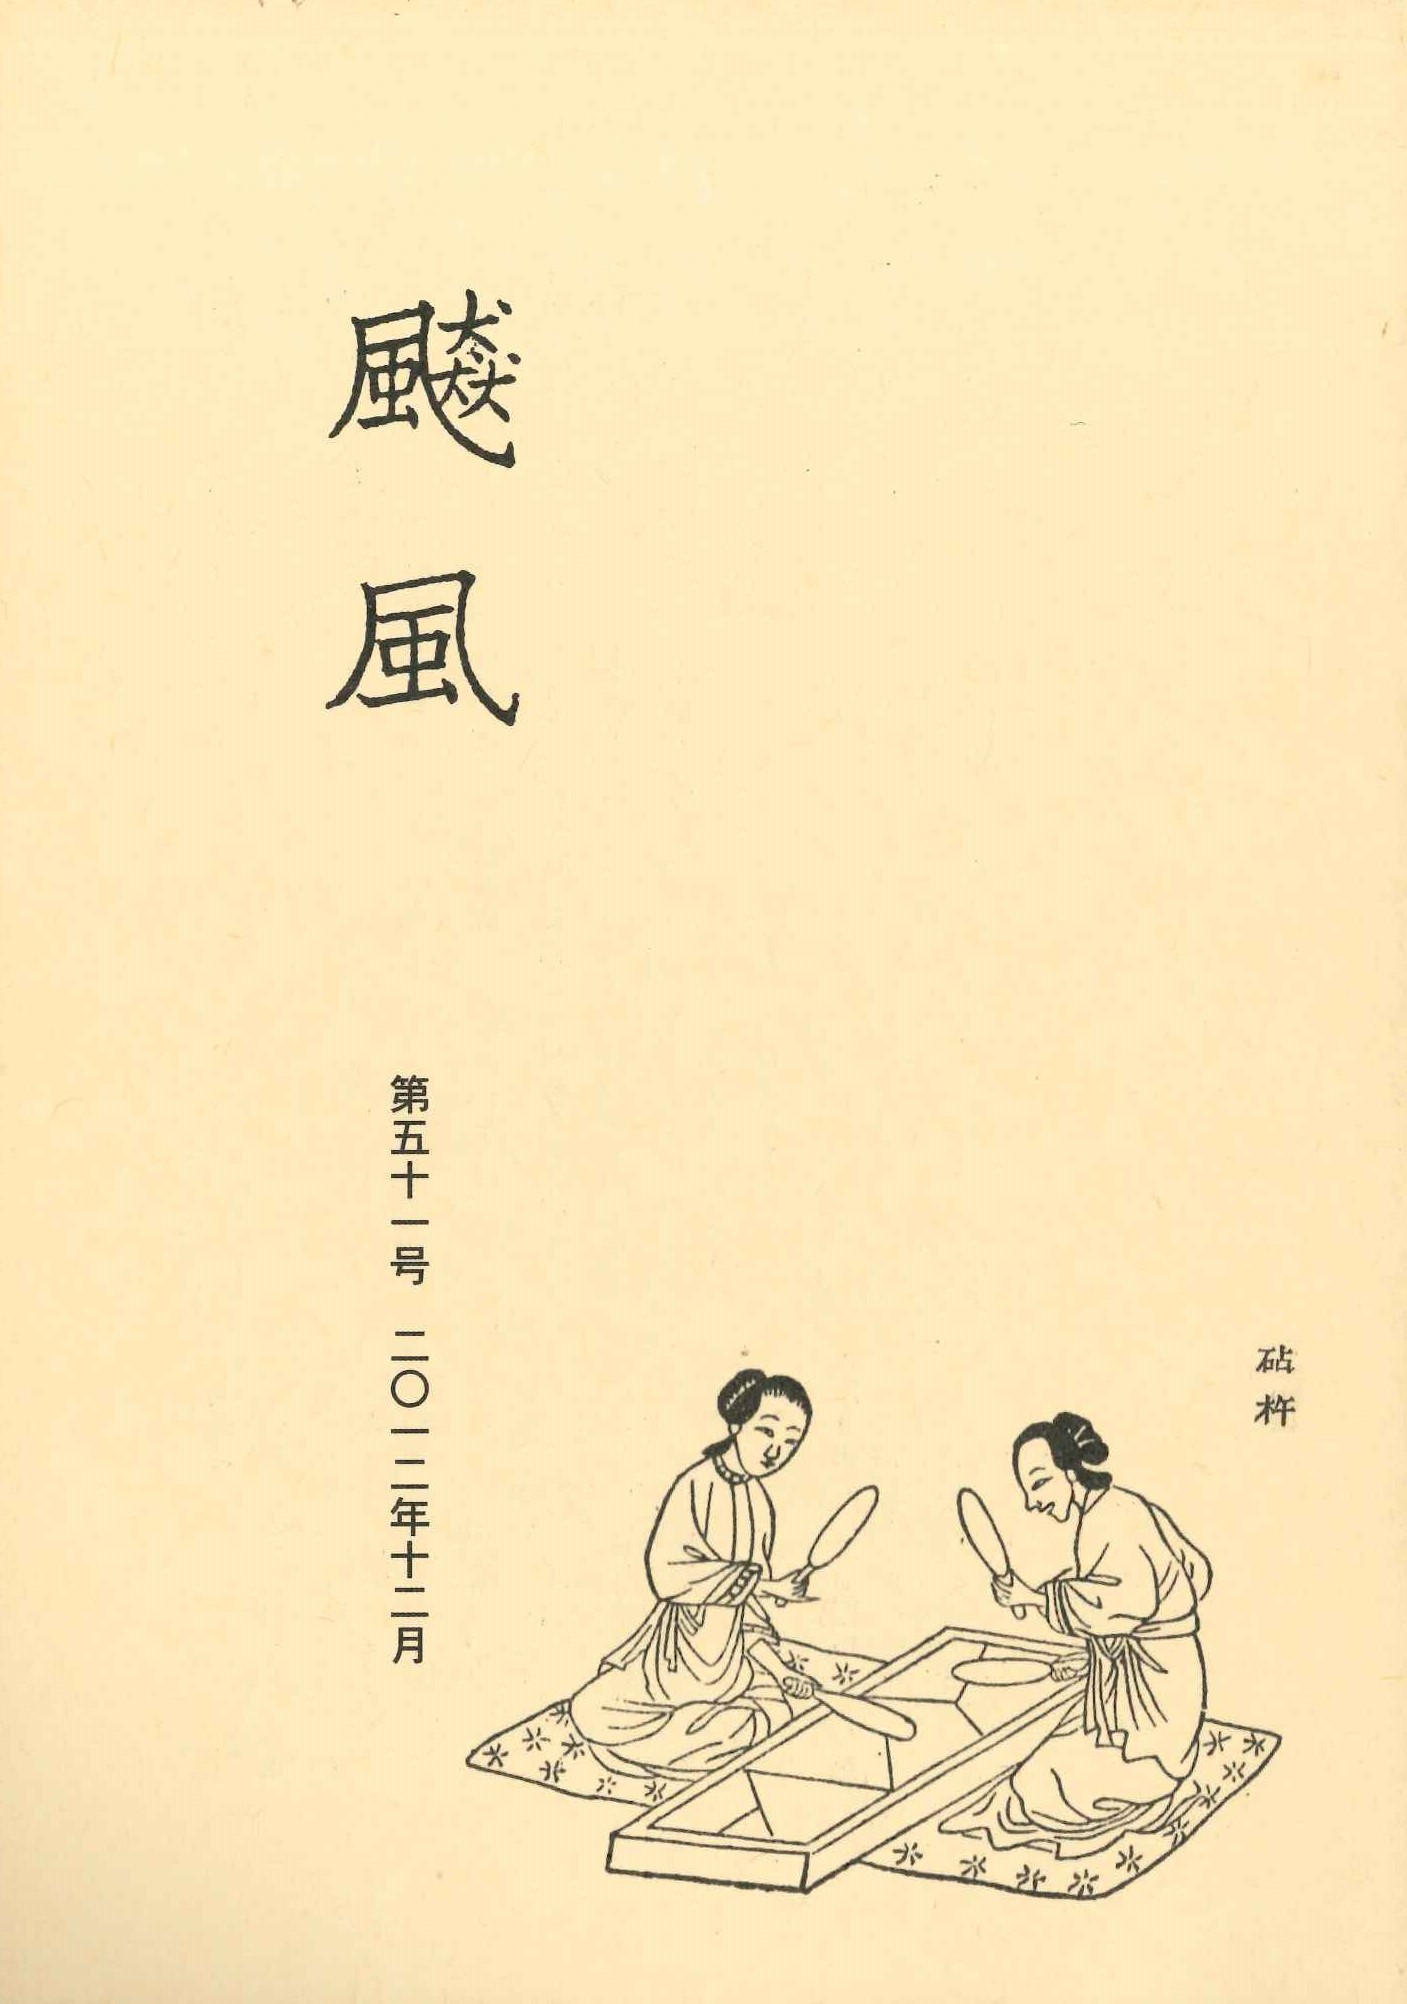 飇風
第五十一号　二〇一二年十二月
砧杵